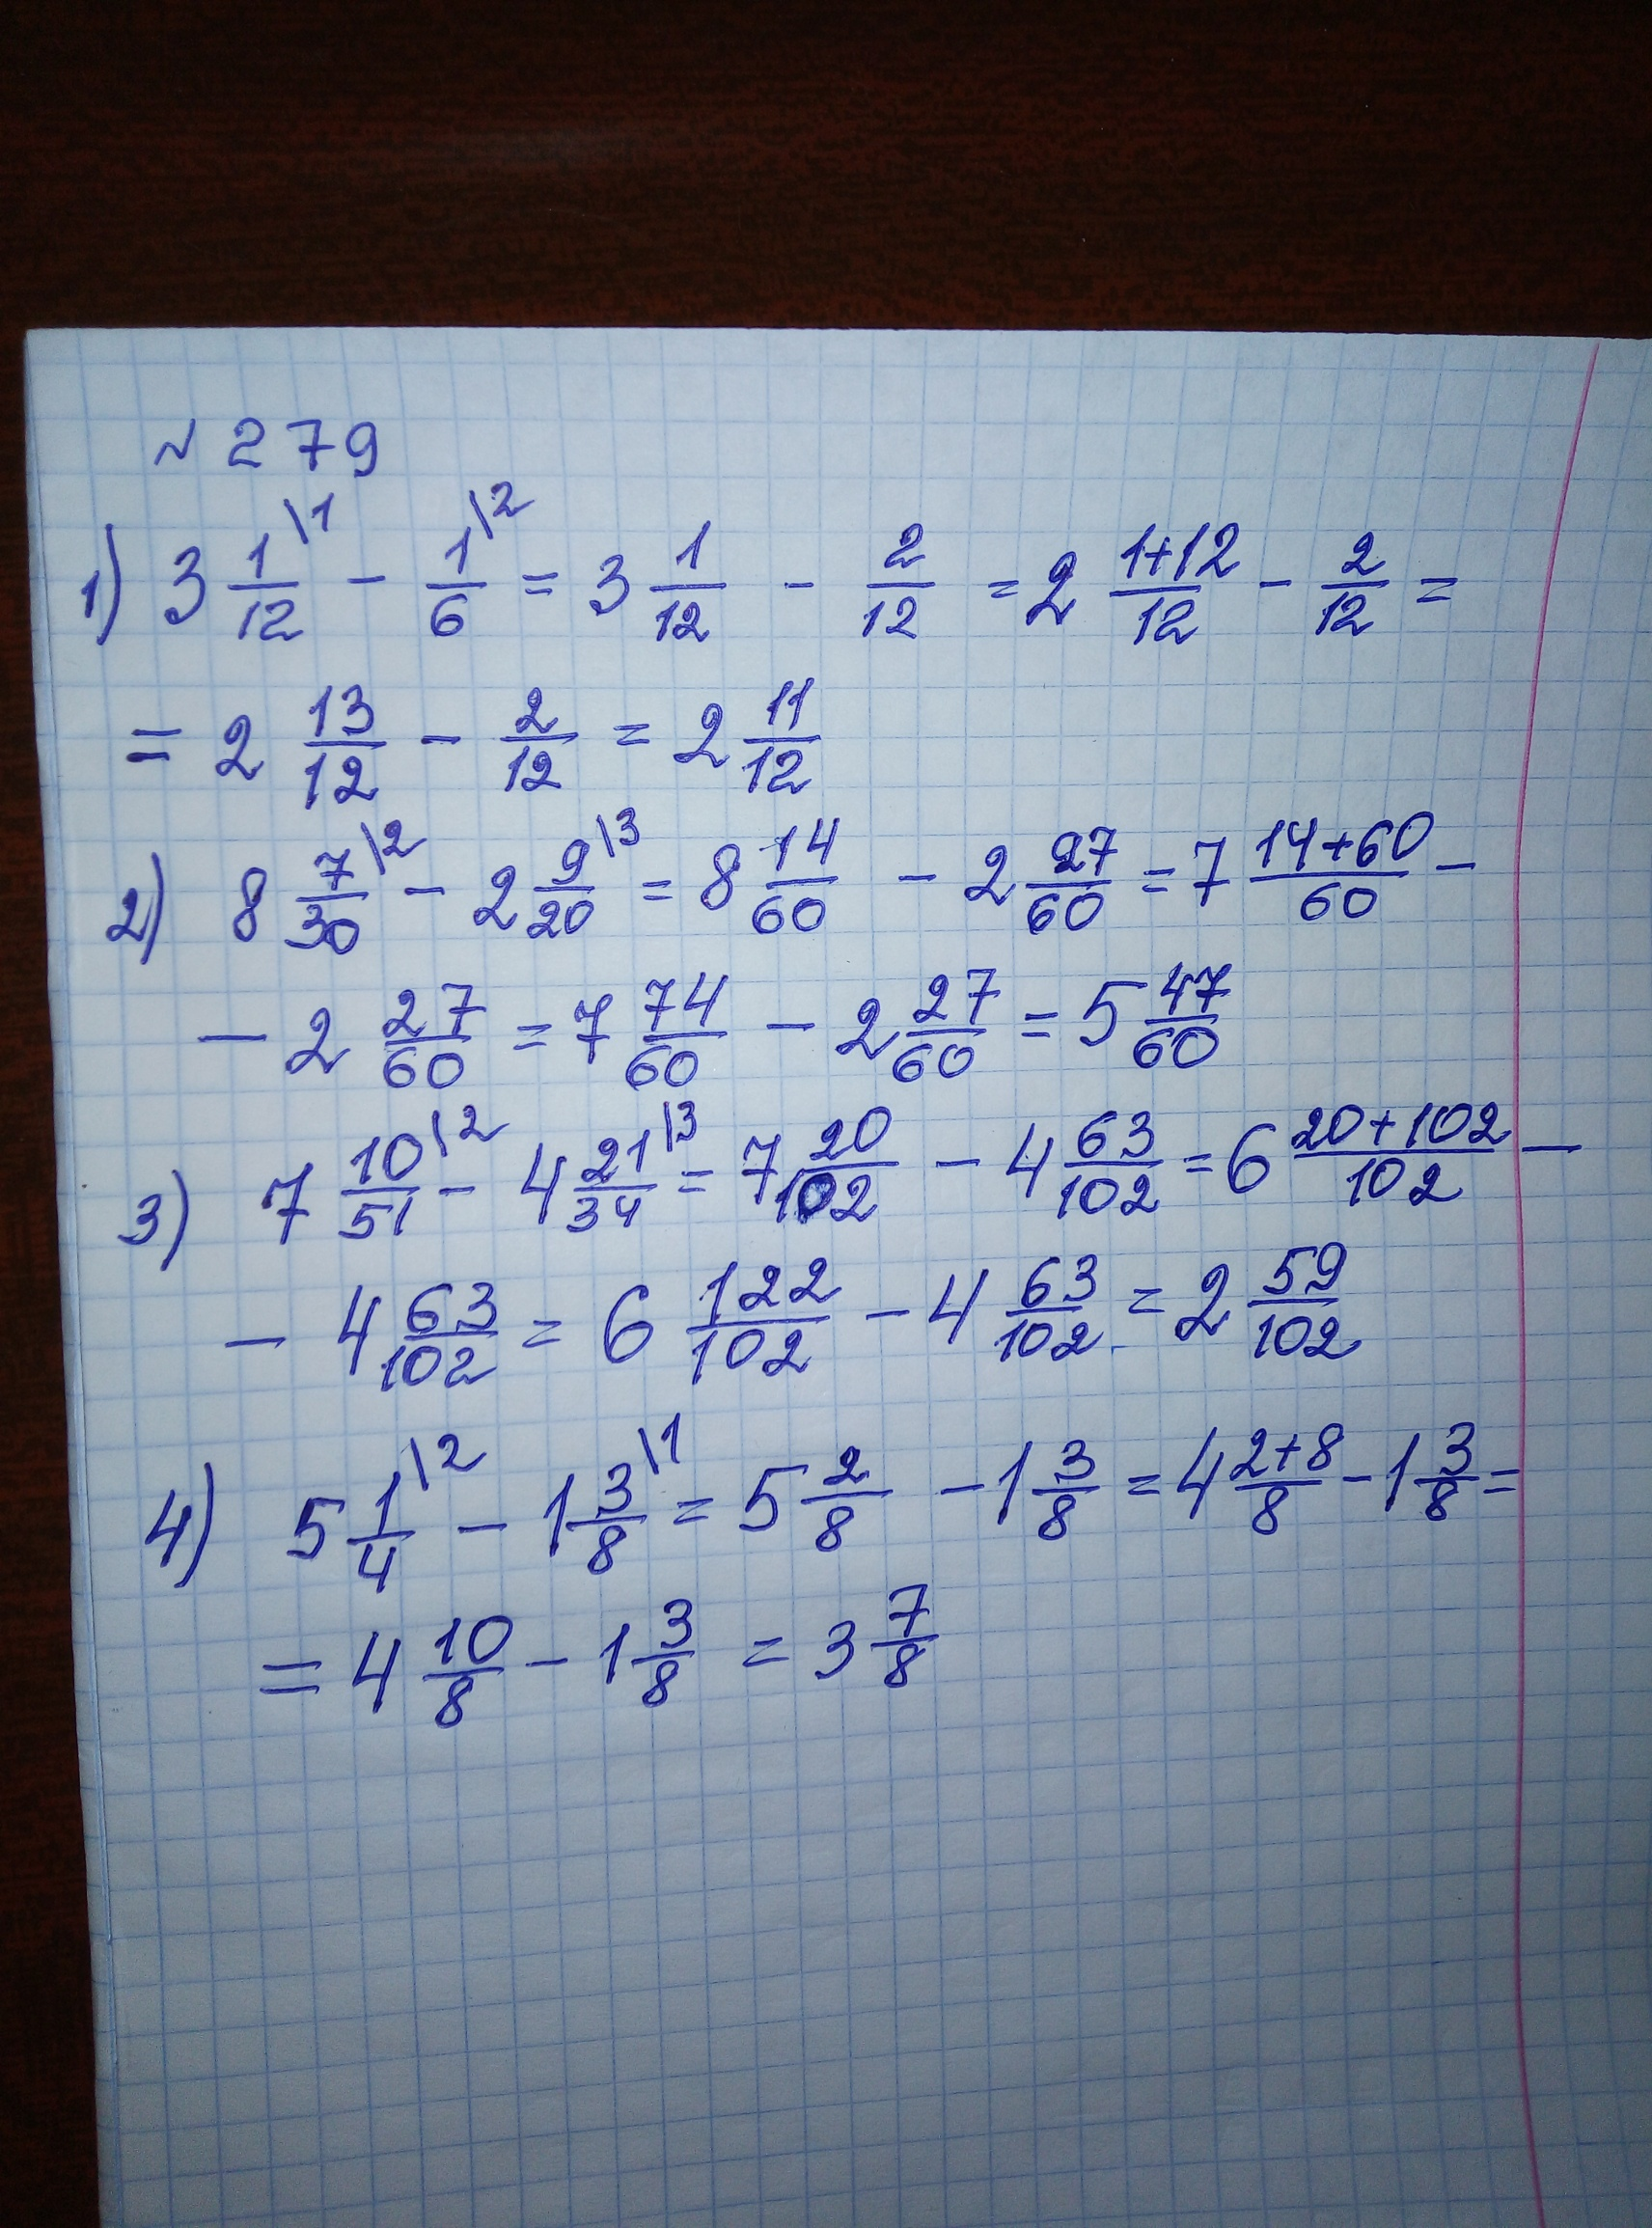 № 279
1) 3 1/12 \1 - 1/6 \2 = 3 1/12 - 2/12 = 2 1+12/12 - 2/12 =
= 2 13/12 - 2/12 = 2 11/12
2) 8 7/30 \2 - 2 9/20 \3 = 8 14/60 - 2 27/60 = 7 14+60/60 -
- 2 27/60 = 7 74/60 - 2 27/60 = 5 47/60
3) 7 10/51 \2 - 4 21/34 \3 = 7 20/102 - 4 63/102 = 6 20+102/102 -
- 4 63/102 = 6 122/102 - 4 63/102 = 2 59/102
4) 5 1/4 \2 - 1 3/8 \1 = 5 2/8 - 1 3/8 = 4 2+8/8 - 1 3/8 =
= 4 10/8 - 1 3/8 = 3 7/8